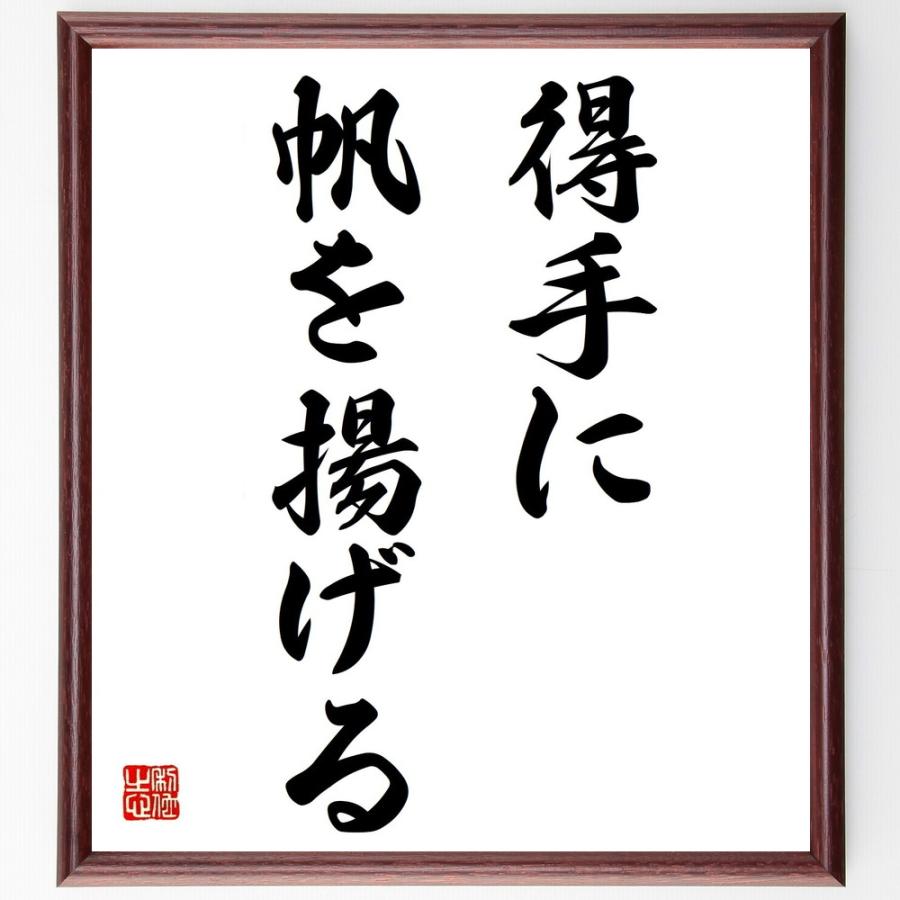 得手に
帆を揚げる